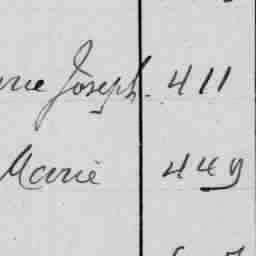 Joseph. 411
Marie 449